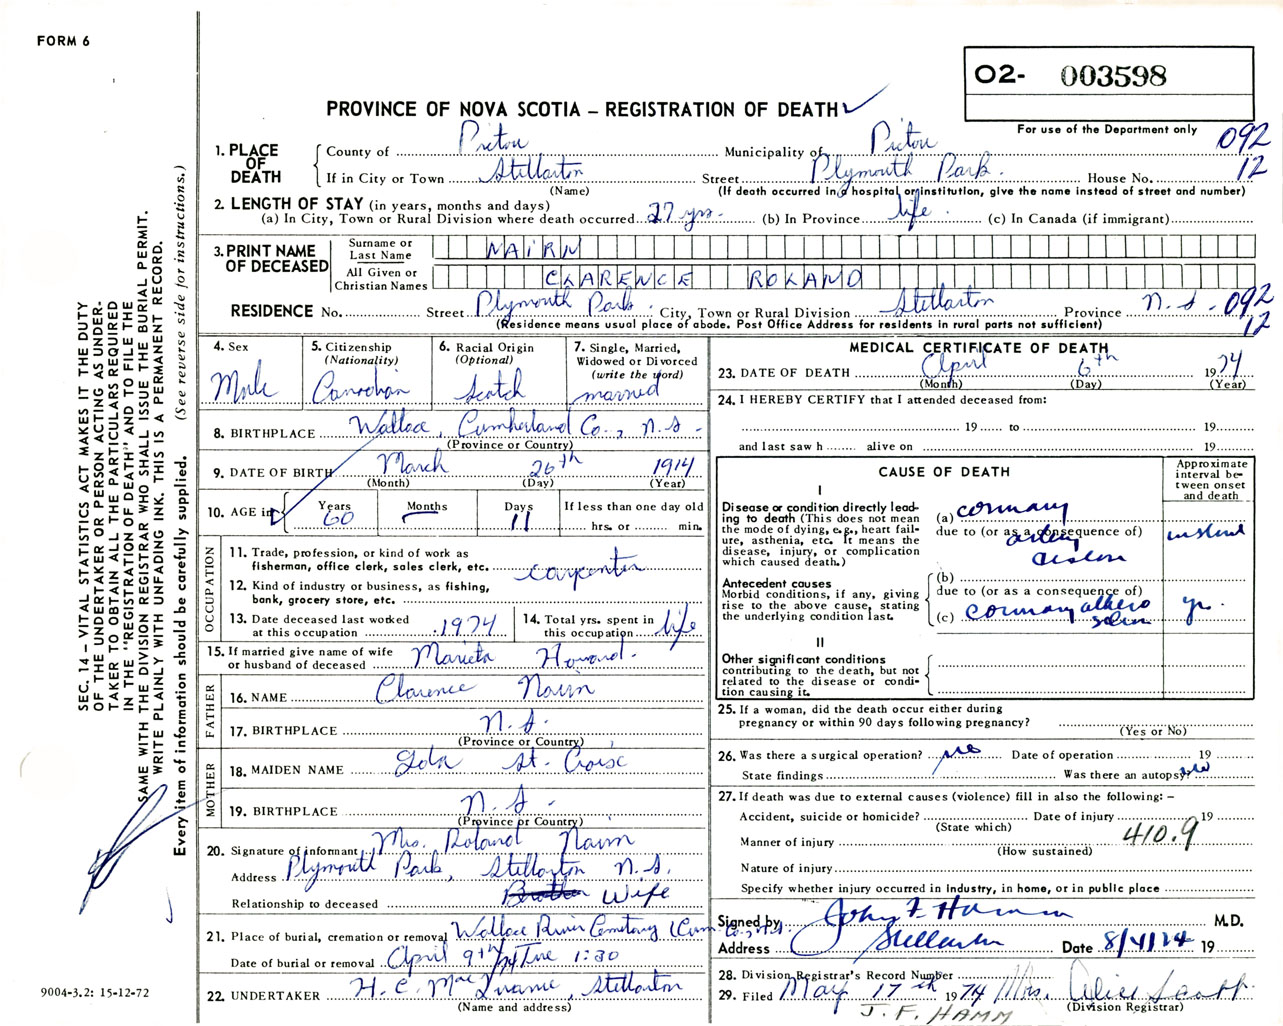 FORM 6
O2- 003598
PROVINCE OF NOVA SCOTIA – REGISTRATION OF DEATH
For use of the Department only
1. PLACE OF DEATH
County of Pictou Municipality of Pictou 092
If in City or Town Stellarton Street Plymouth Park. House No. 12
(Name) (If death occurred in a hospital or institution, give the name instead of street and number)
2. LENGTH OF STAY (in years, months and days)
(a) In City, Town or Rural Division where death occurred 27 yrs. (b) In Province life. (c) In Canada (if immigrant)
3. PRINT NAME OF DECEASED
Surname or Last Name NAIRN
All Given or Christian Names CLARENCE ROLAND
RESIDENCE No. Street Plymouth Park. City, Town or Rural Division Stellarton Province N.S. 092
(Residence means usual place of abode. Post Office Address for residents in rural parts not sufficient) 12
4. Sex
Male
5. Citizenship
(Nationality)
Canadian
6. Racial Origin
(Optional)
Scotch
7. Single, Married,
Widowed or Divorced
(write the word)
married
8. BIRTHPLACE Wallace, Cumberland Co., N.S.
(Province or Country)
9. DATE OF BIRTH March 26th 1914
(Month) (Day) (Year)
10. AGE in
Years Months Days If less than one day old
60 – 11 hrs. or min.
OCCUPATION
11. Trade, profession, or kind of work as
fisherman, office clerk, sales clerk, etc. carpenter
12. Kind of industry or business, as fishing,
bank, grocery store, etc.
13. Date deceased last worked
at this occupation 1974
14. Total yrs. spent in
this occupation life
15. If married give name of wife
or husband of deceased Marieta Howard.
FATHER
16. NAME Clarence Nairn
17. BIRTHPLACE N.S.
(Province or Country)
MOTHER
18. MAIDEN NAME Ida St. Croix
19. BIRTHPLACE N.S.
(Province or Country)
20. Signature of informant Mrs. Roland Nairn
Address Plymouth Park, Stellarton N.S.
Relationship to deceased Brother Wife
21. Place of burial, cremation or removal Wallace River Cemetery (Cum. Co., N.S.
Date of burial or removal April 9th/74 Tue 1:30
22. UNDERTAKER H.C. MacQuarrie, Stellarton
(Name and address)
MEDICAL CERTIFICATE OF DEATH
23. DATE OF DEATH April 6th 1974
(Month) (Day) (Year)
24. I HEREBY CERTIFY that I attended deceased from:
19 to 19
and last saw h alive on 19
CAUSE OF DEATH
Approximate interval between onset and death
I
Disease or condition directly leading to death (This does not mean the mode of dying, e.g., heart failure, asthenia, etc. It means the disease, injury, or complication which caused death.)
(a) coronary
due to (or as a consequence of)
artery
Antecedent causes
Morbid conditions, if any, giving rise to the above cause, stating the underlying condition last.
(b)
due to (or as a consequence of)
(c) coronary athero
yr.
II
Other significant conditions
contributing to the death, but not related to the disease or condition causing it.
25. If a woman, did the death occur either during
pregnancy or within 90 days following pregnancy?
(Yes or No)
26. Was there a surgical operation? no Date of operation 19
State findings Was there an autopsy? no
27. If death was due to external causes (violence) fill in also the following: –
Accident, suicide or homicide? Date of injury 19
(State which)
Manner of injury 410.9
(How sustained)
Nature of injury
Specify whether injury occurred in industry, in home, or in public place
Signed by John F. Hamm M.D.
Address Stellarton Date 8/4/74 19
28. Division Registrar's Record Number
29. Filed May 17th 1974 Mrs. Alice Scott
(Division Registrar)
J. F. HAMM
SEC. 14 – VITAL STATISTICS ACT MAKES IT THE DUTY
OF THE UNDERTAKER OR PERSON ACTING AS UNDER-
TAKER TO OBTAIN ALL THE PARTICULARS REQUIRED
IN THE "REGISTRATION OF DEATH" AND TO FILE THE
SAME WITH THE DIVISION REGISTRAR WHO SHALL ISSUE THE BURIAL PERMIT.
WRITE PLAINLY WITH UNFADING INK. THIS IS A PERMANENT RECORD.
Every item of information should be carefully supplied. (See reverse side for instructions.)
9004-3.2: 15-12-72